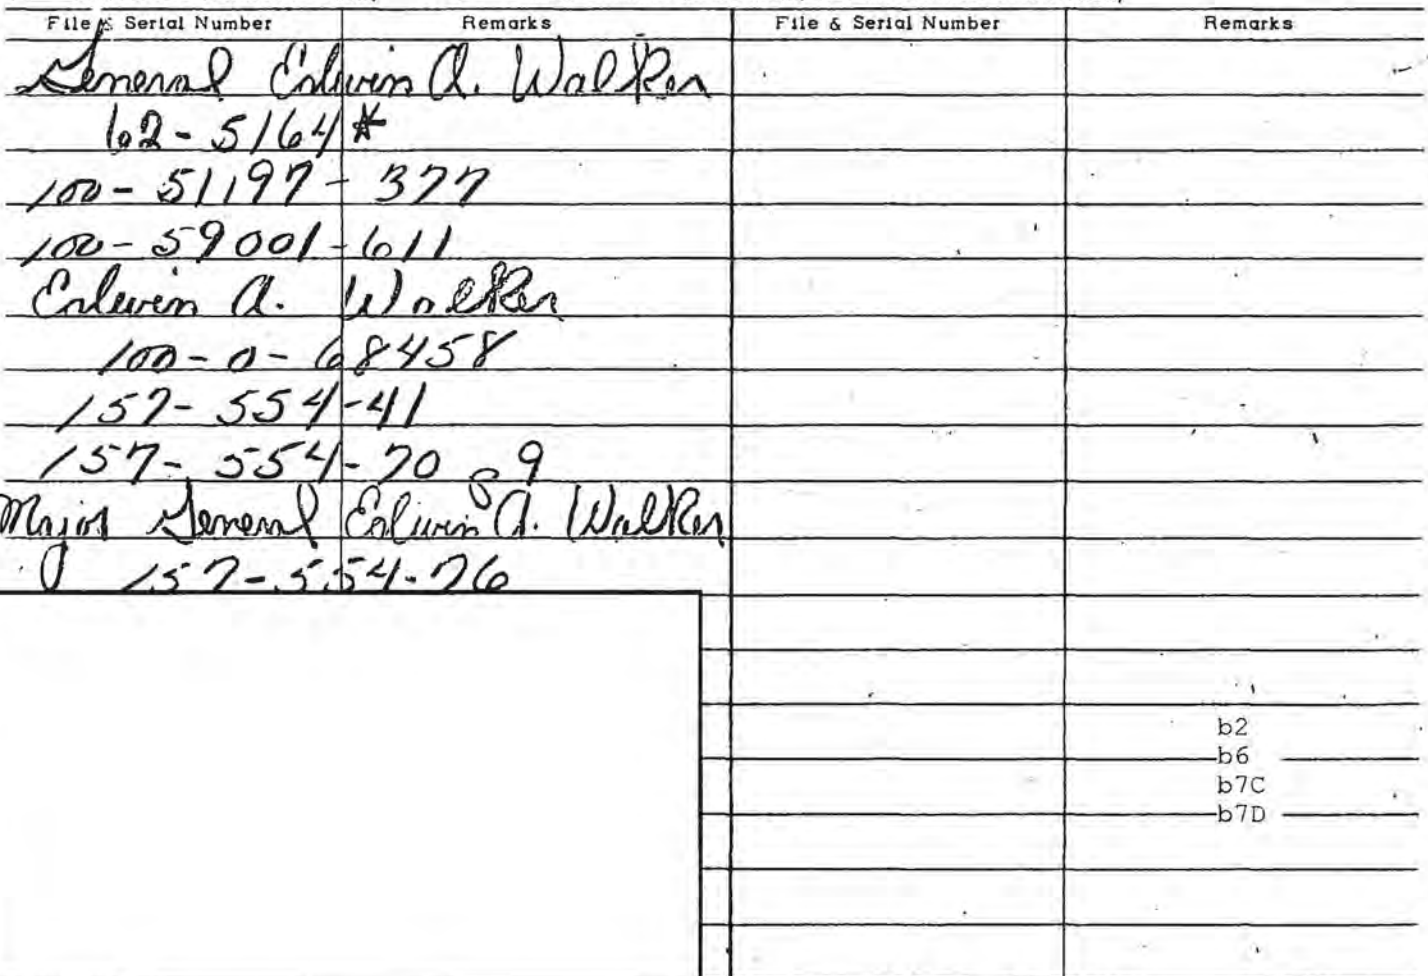 File & Serial Number Remarks File & Serial Number Remarks
General Edwin A. Walker
62-5164*
100-51197-377
100-59001-611
Edwin A. Walker
100-0-68458
157-554-41
157-554-70 p9
Major General Edwin A. Walker
157-554-76
b2
b6
b7C
b7D